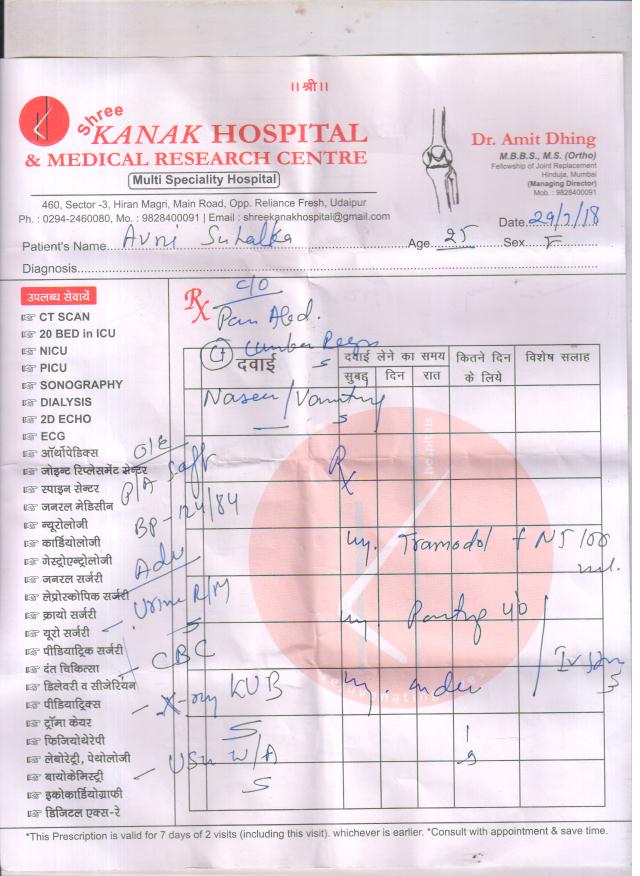 ।। श्री ।।
Shree
KANAK HOSPITAL
& MEDICAL RESEARCH CENTRE
Multi Speciality Hospital
460, Sector -3, Hiran Magri, Main Road, Opp. Reliance Fresh, Udaipur
Ph. : 0294-2460080, Mo. : 9828400091 | Email : shreekanakhospital@gmail.com
Dr. Amit Dhing
M.B.B.S., M.S. (Ortho)
Fellowship of Joint Replacement
Hinduja, Mumbai
(Managing Director)
Mob. : 9828400091
Date 29/7/18
Patient's Name Avni Suhalka Age 25 Sex F
Diagnosis
उपलब्ध सेवायें
CT SCAN
20 BED in ICU
NICU
PICU
SONOGRAPHY
DIALYSIS
2D ECHO
ECG
ऑर्थोपेडिक्स
जोइन्ट रिप्लेसमेंट सेन्टर
स्पाइन सेन्टर
जनरल मेडिसीन
न्यूरोलोजी
कार्डियोलोजी
गेस्ट्रोएन्ट्रोलोजी
जनरल सर्जरी
लेप्रोस्कोपिक सर्जरी
क्रायो सर्जरी
यूरो सर्जरी
पीडियाट्रिक सर्जरी
दंत चिकित्सा
डिलेवरी व सीजेरियन
पीडियाट्रिक्स
ट्रॉमा केयर
फिजियोथेरेपी
लेबोरेट्री, पेथोलोजी
बायोकेमिस्ट्री
इकोकार्डियोग्राफी
डिजिटल एक्स-रे
Rx
C/O
Pain Abd.
दवाई
दवाई लेने का समय
सुबह
दिन
रात
कितने दिन
के लिये
विशेष सलाह
O/E
P/A Soft
BP-124/84
Adv
Urine R/M
CBC
X-ray KUB
USG W/A
Rx
Inj. Tramadol
NS 100
ml.
Inj.
40
Inj.
hospitals
*This Prescription is valid for 7 days of 2 visits (including this visit). whichever is earlier. *Consult with appointment & save time.